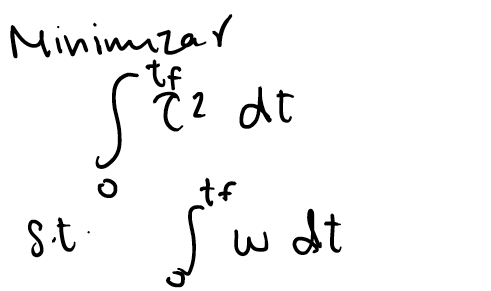 Minimizar
∫₀^tf τ² dt
s.t. ∫₀^tf w dt